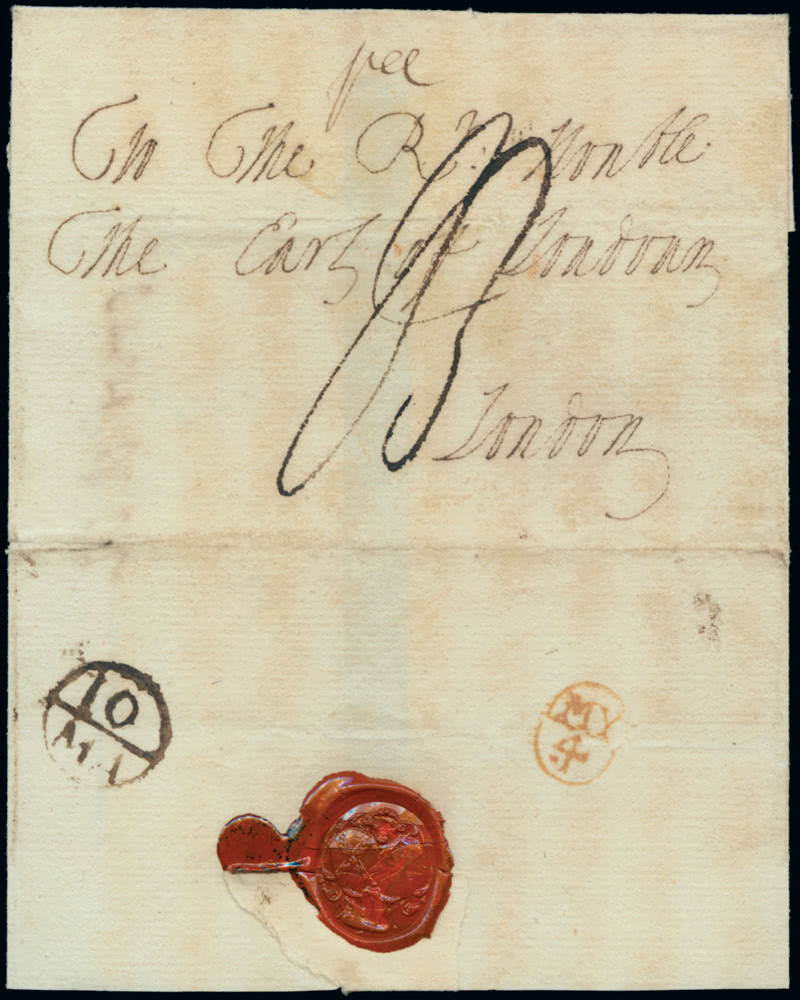 To The Rt: Honble:
The Earl of Loudoun
London
10
MY
4